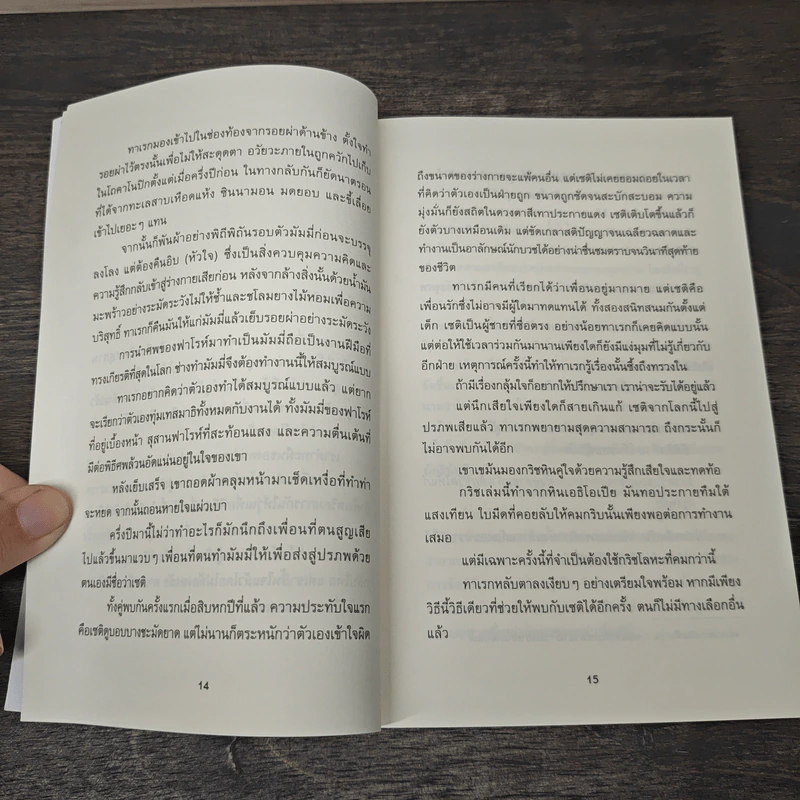 ทาเรกมองเข้าไปในช่องท้องจากรอยผ่าด้านข้าง ตั้งใจทำ
รอยผ่าไว้ตรงนั้นเพื่อไม่ให้สะดุดตา อวัยวะภายในถูกควักไปเก็บ
ในโถคาโนปิกตั้งแต่เมื่อครึ่งปีก่อน ในทางกลับกันก็ยัดนาตรอน
ที่ได้จากทะเลสาบเหือดแห้ง ซินนามอน มดยอบ และขี้เลื่อย
เข้าไปเยอะๆ แทน
จากนั้นก็พันผ้าอย่างพิถีพิถันรอบตัวมัมมี่ก่อนจะบรรจุ
ลงโลง แต่ต้องคืนอิบ (หัวใจ) ซึ่งเป็นสิ่งควบคุมความคิดและ
ความรู้สึกกลับเข้าสู่ร่างกายเสียก่อน หลังจากล้างสิ่งนั้นด้วยน้ำมัน
มะพร้าวอย่างระมัดระวังไม่ให้ช้ำและชโลมยางไม้หอมเพื่อความ
บริสุทธิ์ ทาเรกก็คืนมันให้แก่มัมมี่แล้วเย็บรอยผ่าอย่างระมัดระวัง
การนำศพของฟาโรห์มาทำเป็นมัมมี่ถือเป็นงานฝีมือที่
ทรงเกียรติที่สุดในโลก ช่างทำมัมมี่จึงต้องทำงานนี้ให้สมบูรณ์แบบ
ทาเรกอยากคิดว่าตัวเองทำได้สมบูรณ์แบบแล้ว แต่ยาก
จะเรียกว่าตัวเองทุ่มเทสมาธิทั้งหมดกับงานได้ ทั้งมัมมี่ของฟาโรห์
ที่อยู่เบื้องหน้า สุสานฟาโรห์ที่สะท้อนแสง และความตื่นเต้นที่
มีต่อพิธีศพล้วนอัดแน่นอยู่ในใจของเขา
หลังเย็บเสร็จ เขาถอดผ้าคลุมหน้ามาเช็ดเหงื่อที่ทำท่า
จะหยด จากนั้นถอนหายใจแผ่วเบา
ครึ่งปีมานี้ไม่ว่าทำอะไรก็มักนึกถึงเพื่อนที่ตนสูญเสีย
ไปแล้วขึ้นมาแวบๆ เพื่อนที่ตนทำมัมมี่ให้เพื่อส่งสู่ปรภพด้วย
ตนเองมีชื่อว่าเซติ
ทั้งคู่พบกันครั้งแรกเมื่อสิบหกปีที่แล้ว ความประทับใจแรก
คือเซติดูบอบบางชะมัดยาด แต่ไม่นานก็ตระหนักว่าตัวเองเข้าใจผิด
14
ถึงขนาดของร่างกายจะแพ้คนอื่น แต่เซติไม่เคยยอมถอยในเวลา
ที่คิดว่าตัวเองเป็นฝ่ายถูก ขนาดถูกซัดจนสะบักสะบอม ความ
มุ่งมั่นก็ยังสถิตในดวงตาสีเทาประกายแดง เซติเติบโตขึ้นแล้วก็
ยังตัวบางเหมือนเดิม แต่ขัดเกลาสติปัญญาจนเฉลียวฉลาดและ
ทำงานเป็นอาลักษณ์นักบวชได้อย่างน่าชื่นชมตราบจนวินาทีสุดท้าย
ของชีวิต
ทาเรกมีคนที่เรียกได้ว่าเพื่อนอยู่มากมาย แต่เซติคือ
เพื่อนรักซึ่งไม่อาจมีผู้ใดมาทดแทนได้ ทั้งสองสนิทสนมกันตั้งแต่
เด็ก เซติเป็นผู้ชายที่ซื่อตรง อย่างน้อยทาเรกก็เคยคิดแบบนั้น
แต่ต่อให้ใช้เวลาร่วมกันมานานเพียงใดก็ยังมีแง่มุมที่ไม่รู้เกี่ยวกับ
อีกฝ่าย เหตุการณ์ครั้งนี้ทำให้ทาเรกรู้เรื่องนั้นซึ้งถึงทรวงใน
ถ้ามีเรื่องกลุ้มใจก็อยากให้ปรึกษาเรา เราน่าจะรับได้อยู่แล้ว
แต่นึกเสียใจเพียงใดก็สายเกินแก้ เซติจากโลกนี้ไปสู่
ปรภพเสียแล้ว ทาเรกพยายามสุดความสามารถ ถึงกระนั้นก็
ไม่อาจพบกันได้อีก
เขาเขม้นมองกริชหินคู่ใจด้วยความรู้สึกเสียใจและทดท้อ
กริชเล่มนี้ทำจากหินเอธิโอเปีย มันทอประกายทึมใต้
แสงเทียน ใบมีดที่คอยลับให้คมกริบนั้นเพียงพอต่อการทำงาน
เสมอ
แต่มีเฉพาะครั้งนี้ที่จำเป็นต้องใช้กริชโลหะที่คมกว่านี้
ทาเรกหลับตาลงเงียบๆ อย่างเตรียมใจพร้อม หากมีเพียง
วิธีนี้วิธีเดียวที่ช่วยให้พบกับเซติได้อีกครั้ง ตนก็ไม่มีทางเลือกอื่น
แล้ว
15